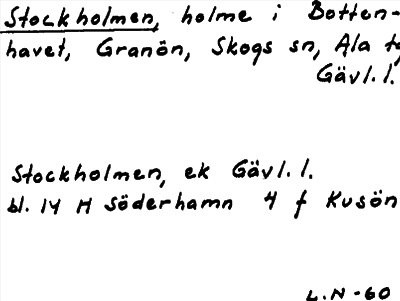 Stockholmen, holme i Botten-
havet, Granön, Skogs sn, Ala tg
Gävl.l.
Stockholmen, ek Gävl.l.
bl. 14 H Söderhamn 4 f Kusön
L.N-60